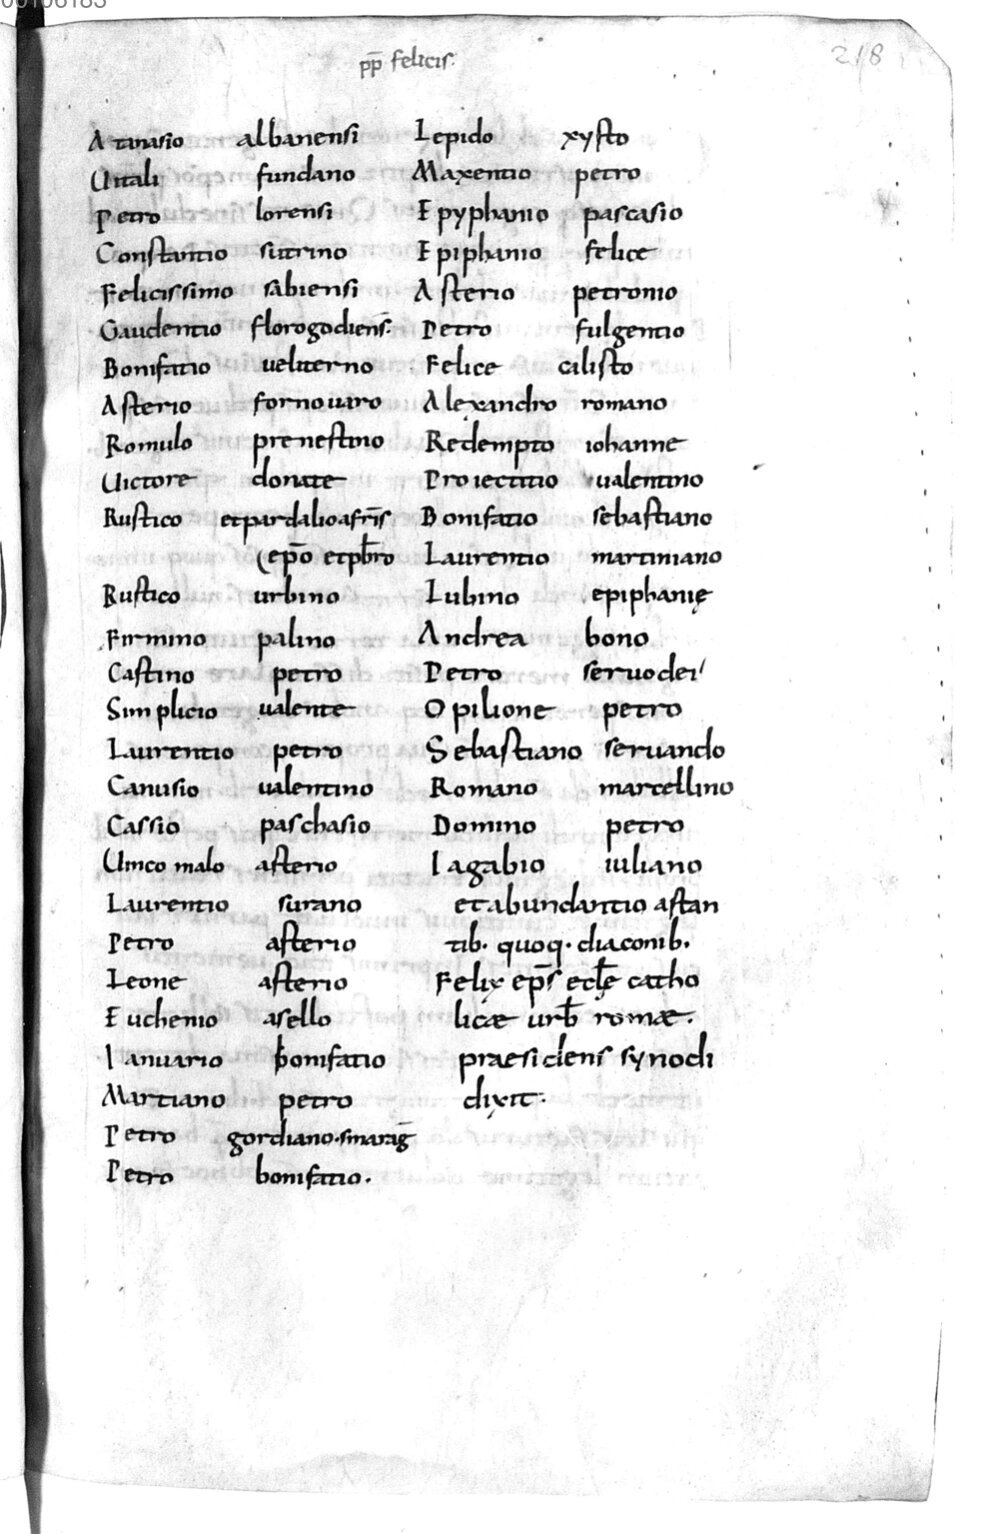 00106183
pp̄ felicis.
218
Atanasio albanensi Lepido xysto
Uitali fundano Maxentio petro
Petro lorensi Epyphanio pascasio
Constantio sutrino Epiphanio felice
Felicissimo sabiensi Asterio petronio
Gaudentio florogodiens̄. Petro fulgentio
Bonifatio ueliterno Felice calisto
Asterio fornouaro Alexandro romano
Romulo prenestino Redempto iohanne
Uictore donate Proiectitio ualentino
Rustico etpardalioafrīs Bonifatio sebastiano
ep̄o etpb̄ro Laurentio martiniano
Rustico urbino Lubino epiphanię
Firmino palino Andrea bono
Castino petro Petro seruodei
Simplicio ualente Opilione petro
Laurentio petro Sebastiano seruando
Canusio ualentino Romano marcellino
Cassio paschasio Domino petro
Uinco malo asterio Iagabio iuliano
Laurentio surano etabundantio astan
Petro asterio tib. quoq. diaconib.
Leone asterio Felix ep̄s ecl̄ę catho
Euchenio asello licæ urb̄ romæ.
Ianuario bonifatio praesidens synodi
Martiano petro dixit:
Petro gordiano.smaraḡ
Petro bonifatio.